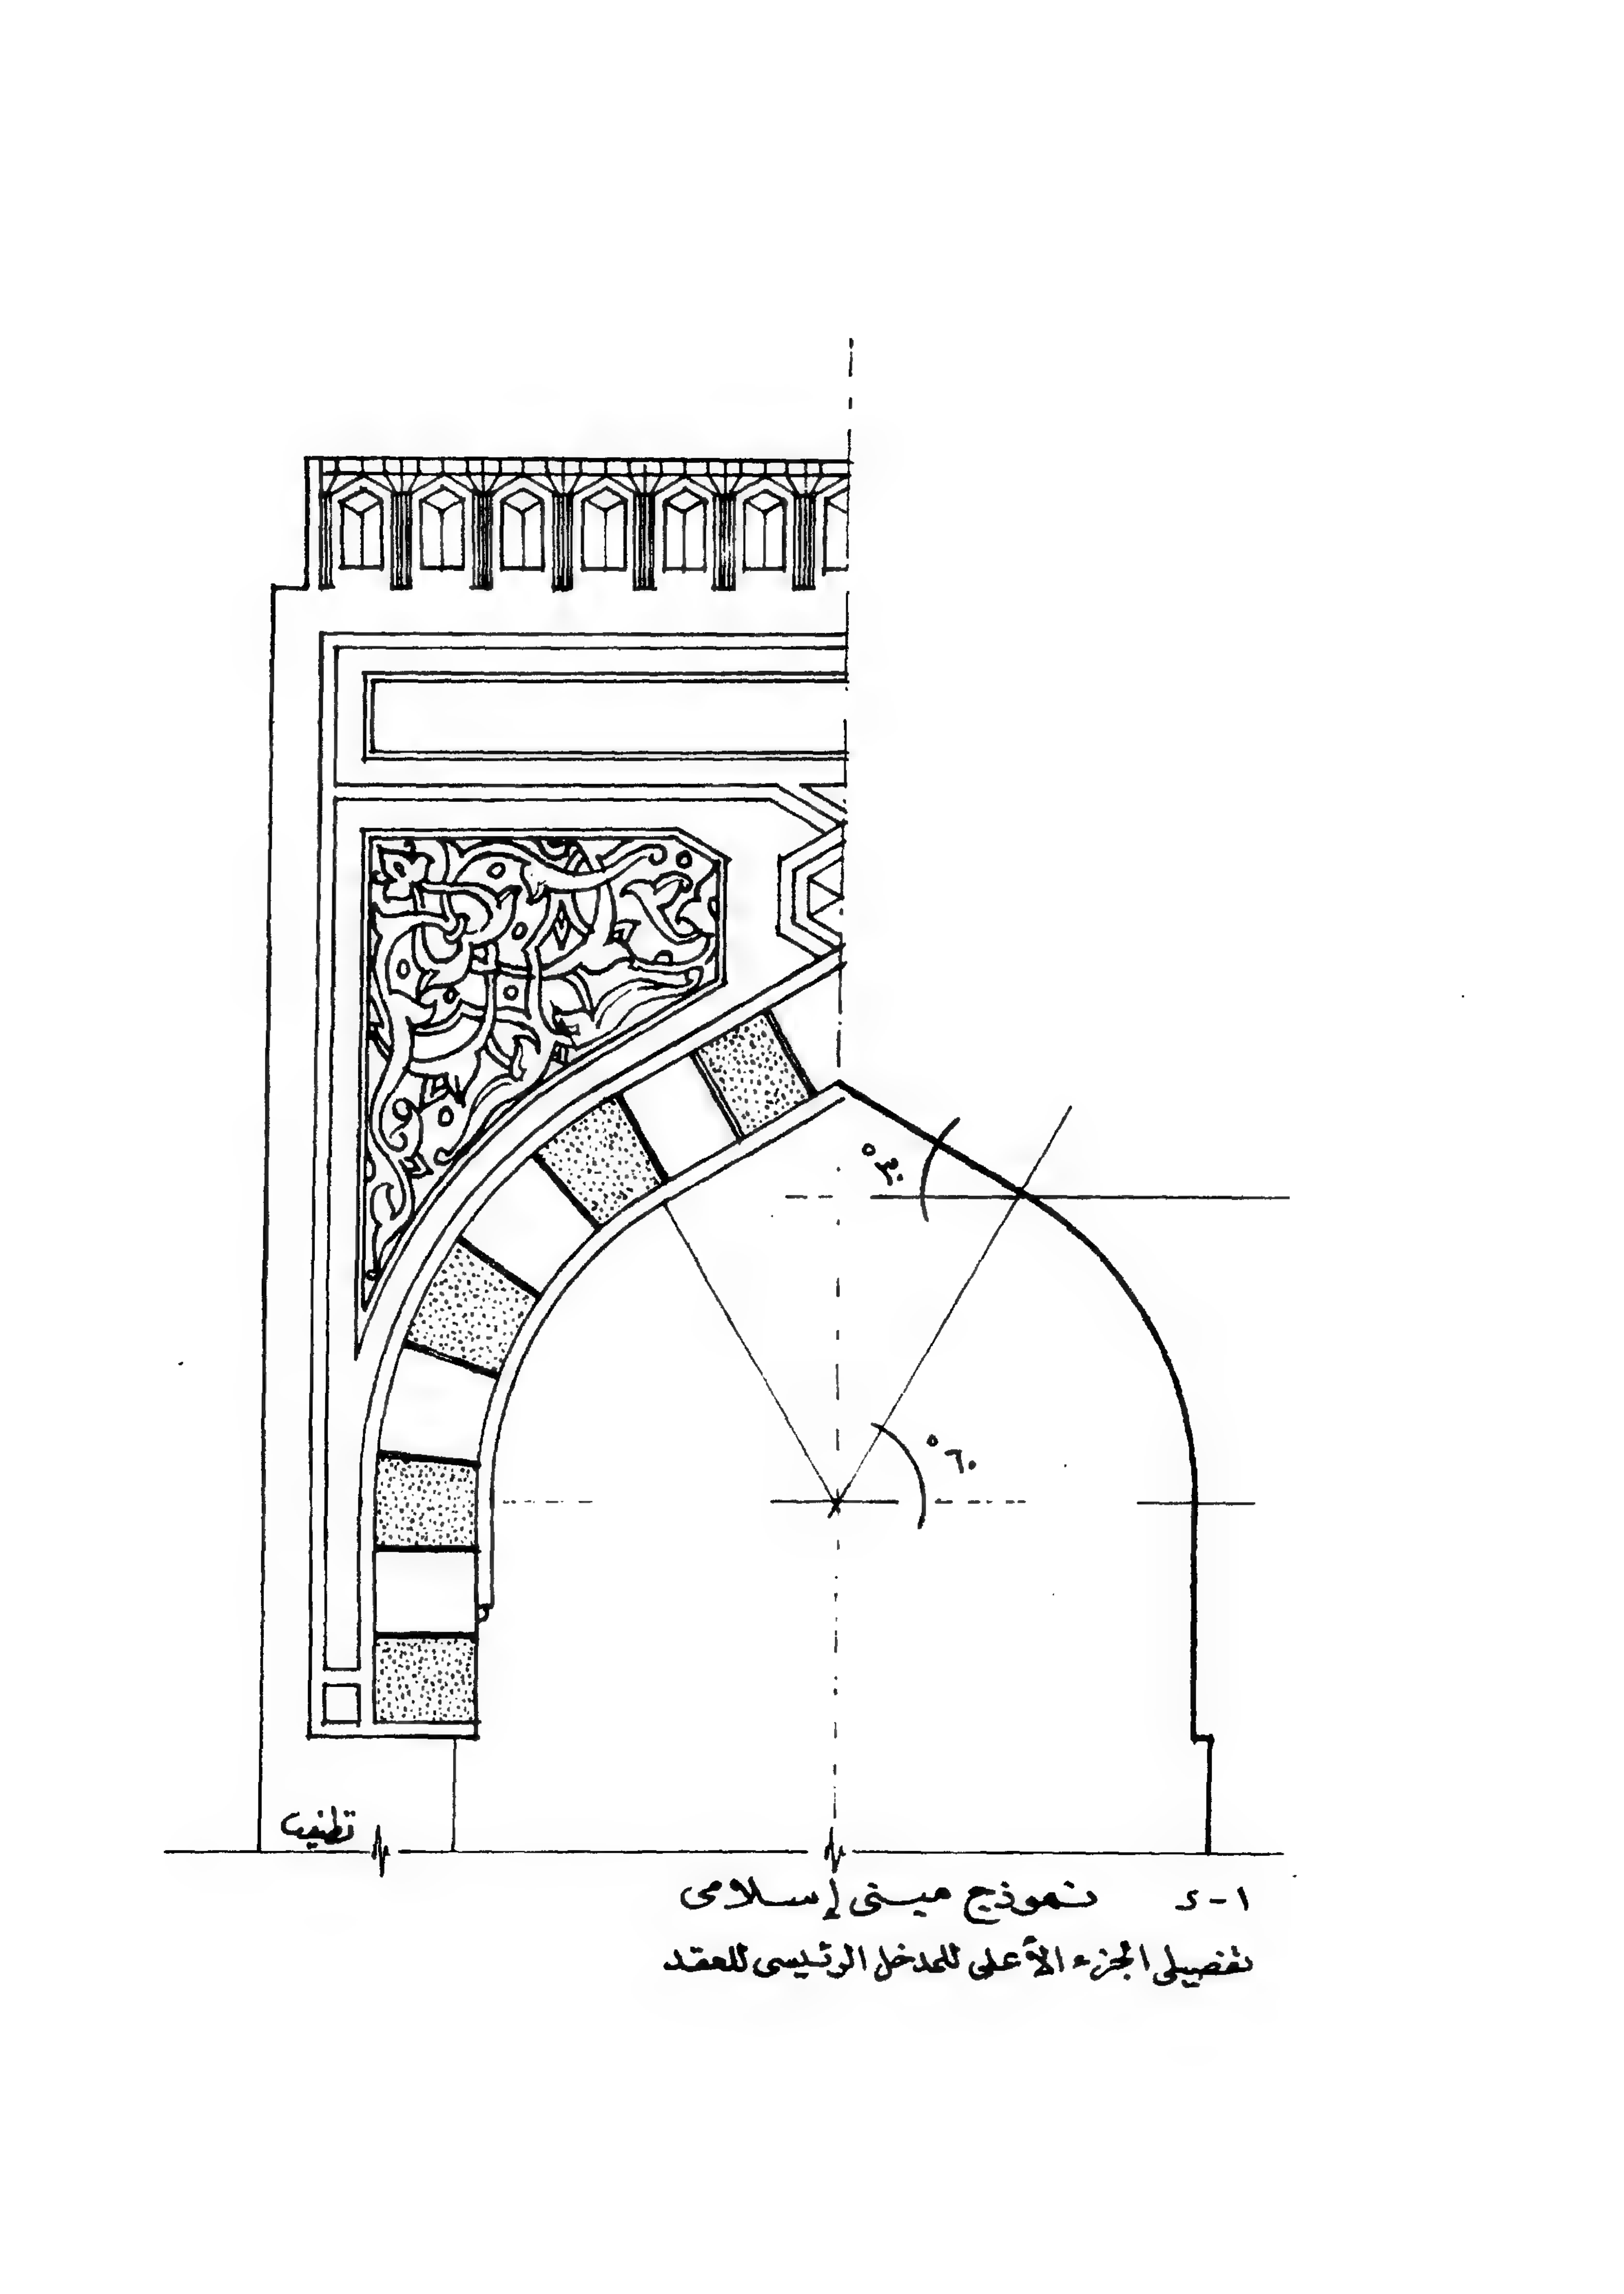 °٣٠
°٦٠
تطنيب
١-٤ نموذج مبنى إسلامى
تفصيلى الجزء الأعلى للمدخل الرئيسى للعقد